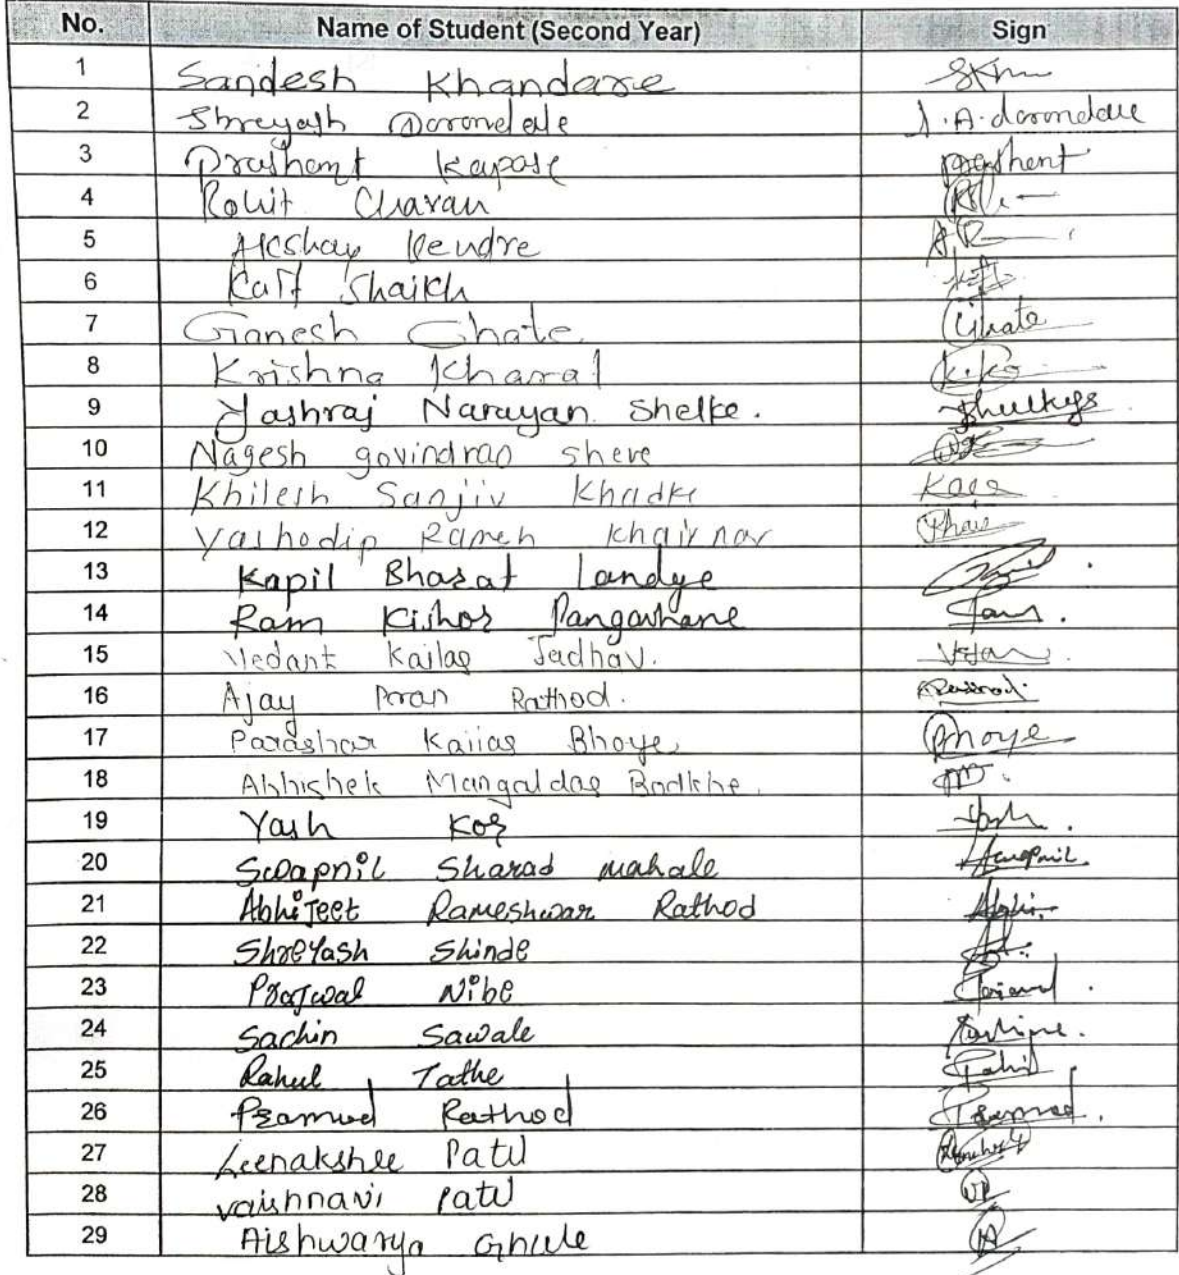 No. Name of Student (Second Year) Sign
1 Sandesh Khandare
2 Shreyash Darondale S.A.darondale
3 Prashant Kapase prashant
4 Rohit Chavan
5 Akshay Kendre
6 Kaif Shaikh
7 Ganesh Ghate Ghate
8 Krishna Kharat
9 Yashraj Narayan Shelke.
10 Nagesh govindrao shere
11 Khilesh Sanjiv Khadke
12 Yashodip Ramesh Khairnar
13 Kapil Bharat Landge
14 Ram Kishor Pangavhane
15 Vedant Kailas Jadhav.
16 Ajay Pran Rathod.
17 Parashar Kailas Bhoye Bhoye
18 Abhishek Mangaldas Bodkhe.
19 Yash Kor Yash.
20 Swapnil Sharad mahale Swapnil.
21 Abhijeet Rameshwar Rathod Abhi.
22 Shreyash Shinde
23 Prajwal Nibe
24 Sachin Sawale
25 Rahul Tathe
26 Pramod Rathod Pramod.
27 Leenakshee Patil
28 vaishnavi patil VP
29 Aishwarya Ghule